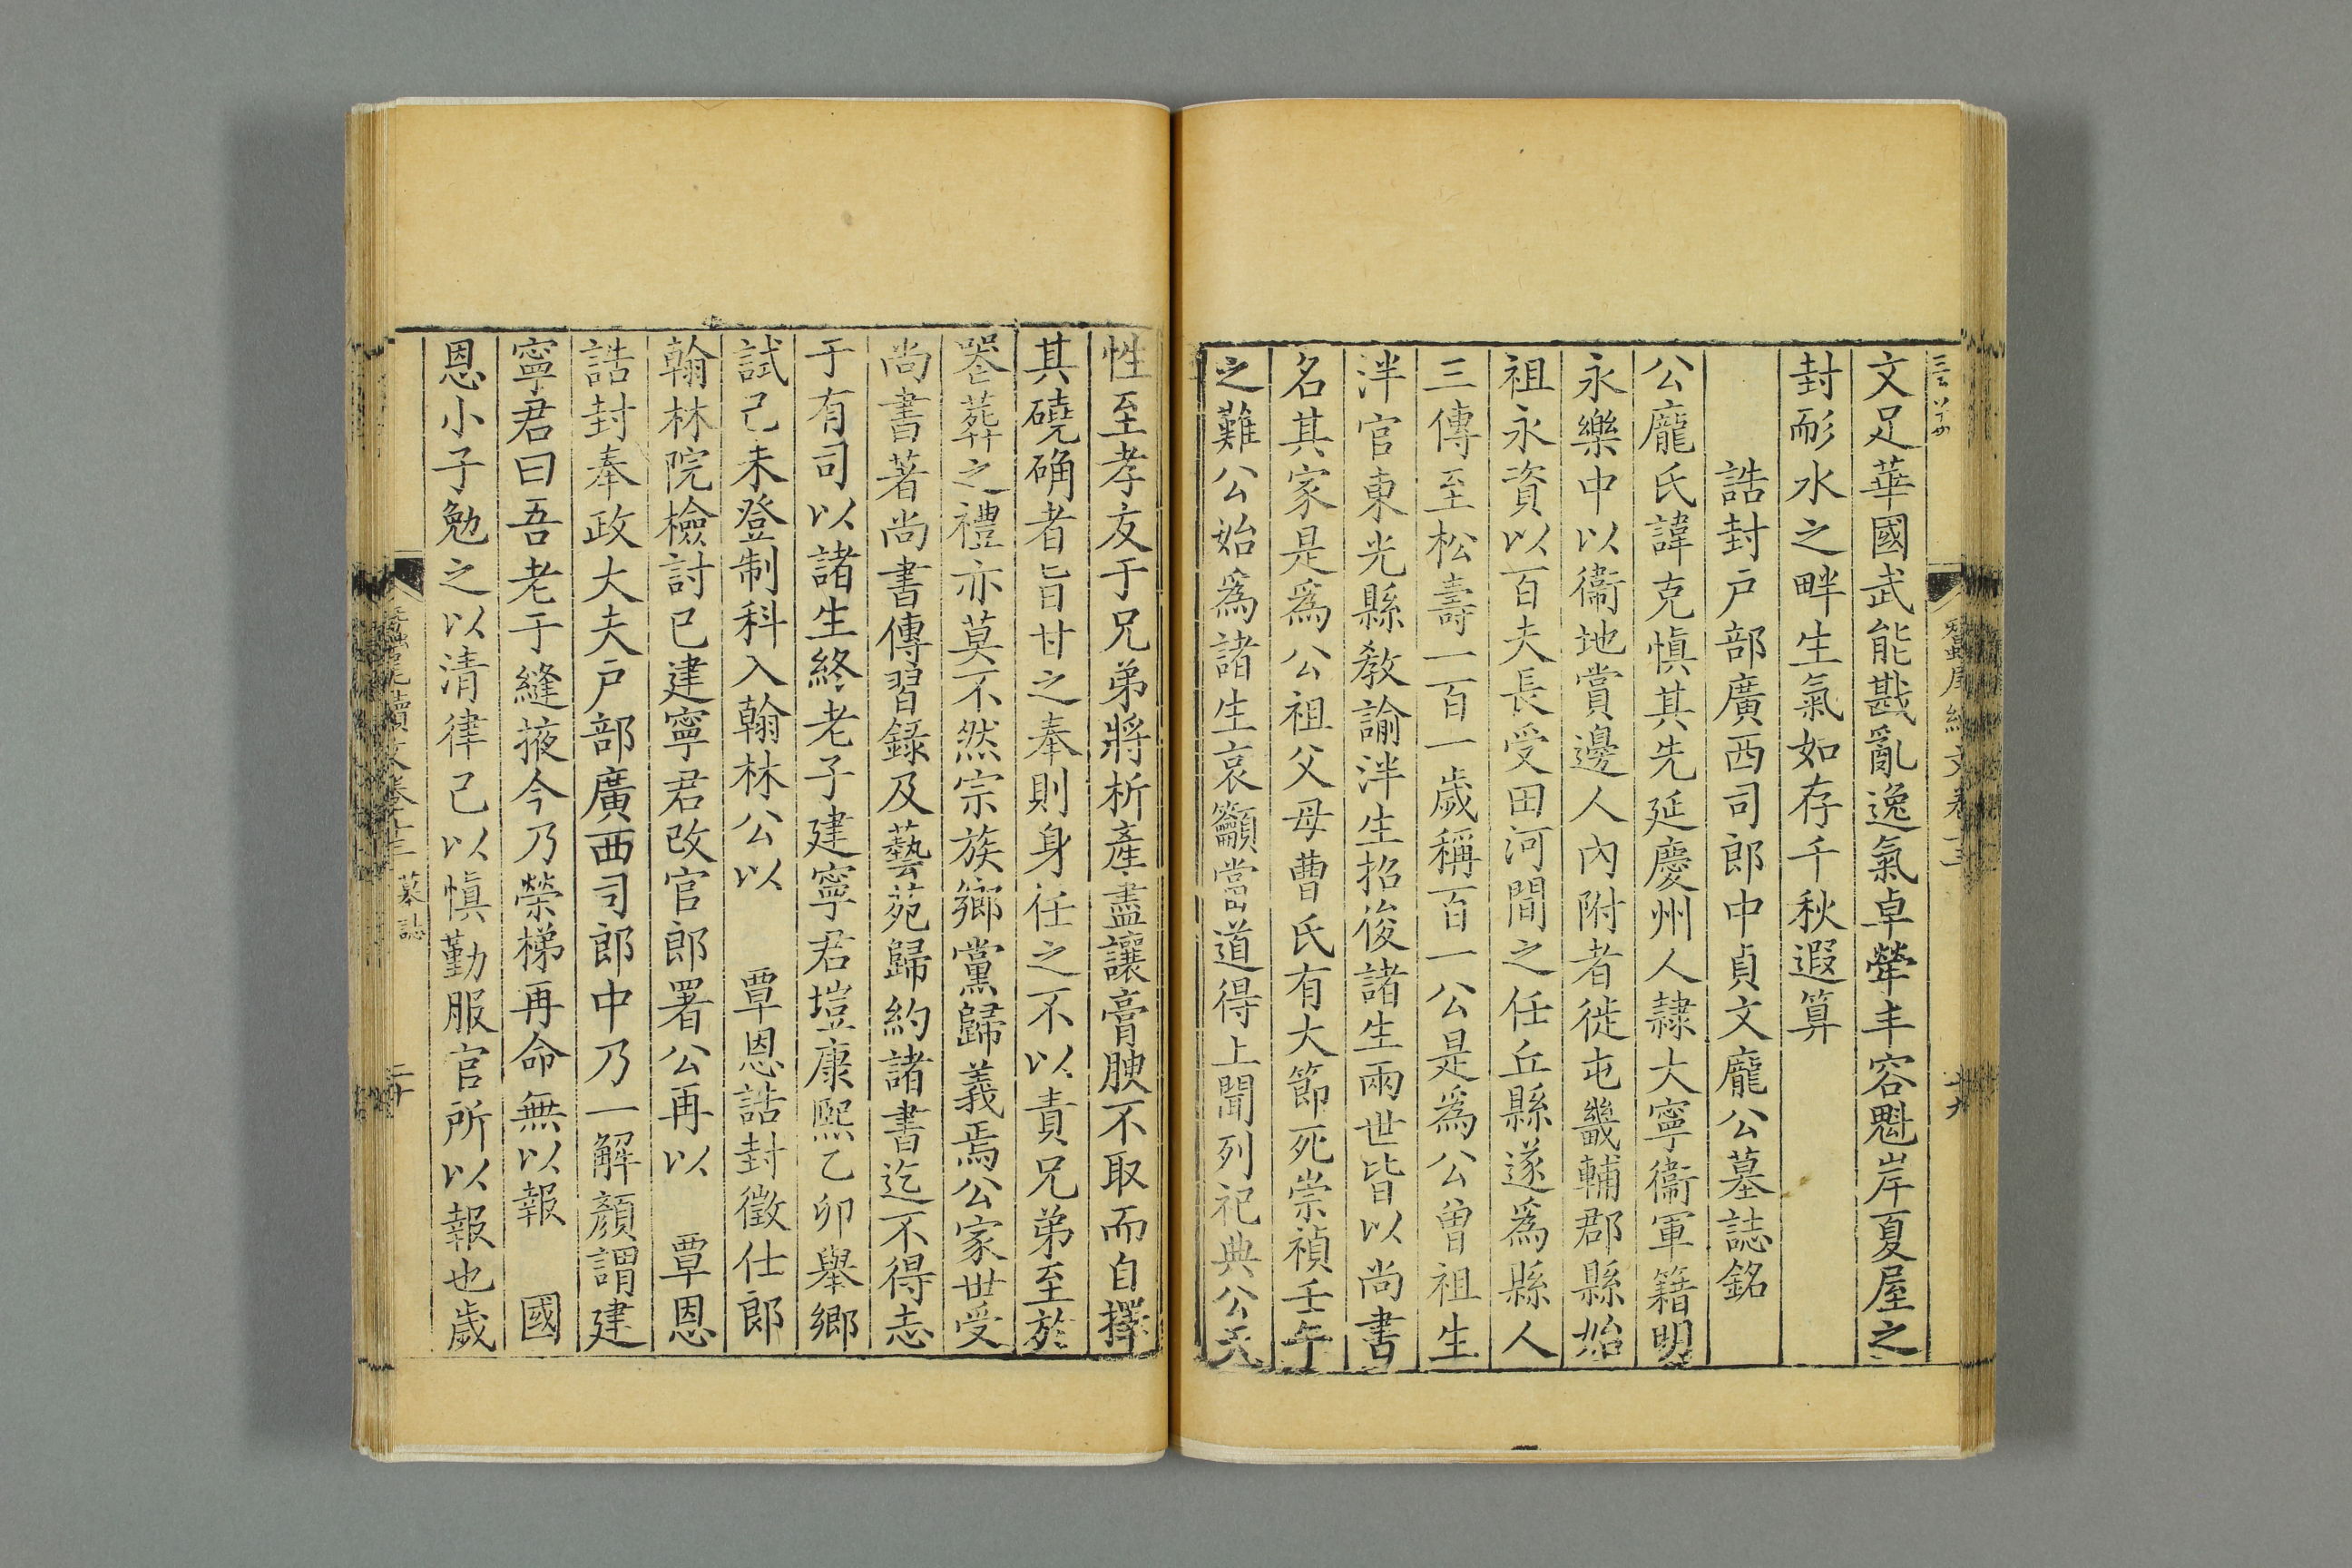 文足華國武能戡亂逸氣卓犖丰容魁岸夏屋之
封耏水之畔生氣如存千秋遐算
誥封戶部廣西司郎中貞文龐公墓誌銘
公龐氏諱克慎其先延慶州人隷大寧衞軍籍明
永樂中以衞地賞邊人內附者徙屯畿輔郡縣始
祖永資以百夫長受田河間之任丘縣遂爲縣人
三傳至松壽一百一歲稱百一公是爲公曾祖生
泮官東光縣敎諭泮生招俊諸生兩世皆以尚書
名其家是爲公祖父母曹氏有大節死崇禎壬午
之難公始爲諸生哀籲當道得上聞列祀典公天
性至孝友于兄弟將析產盡讓膏腴不取而自擇
其磽确者旨甘之奉則身任之不以責兄弟至於
䘮葬之禮亦莫不然宗族鄉黨歸義焉公家世受
尚書著尚書傳習錄及藝苑歸約諸書迄不得志
于有司以諸生終老子建寧君塏康熙乙卯舉鄉
試己未登制科入翰林公以　覃恩誥封徵仕郎
翰林院檢討已建寧君改官郎署公再以　覃恩
誥封奉政大夫戶部廣西司郎中乃一解顏謂建
寧君曰吾老于縫掖今乃榮梯再命無以報　國
恩小子勉之以清律己以慎勤服官所以報也歲
墓誌